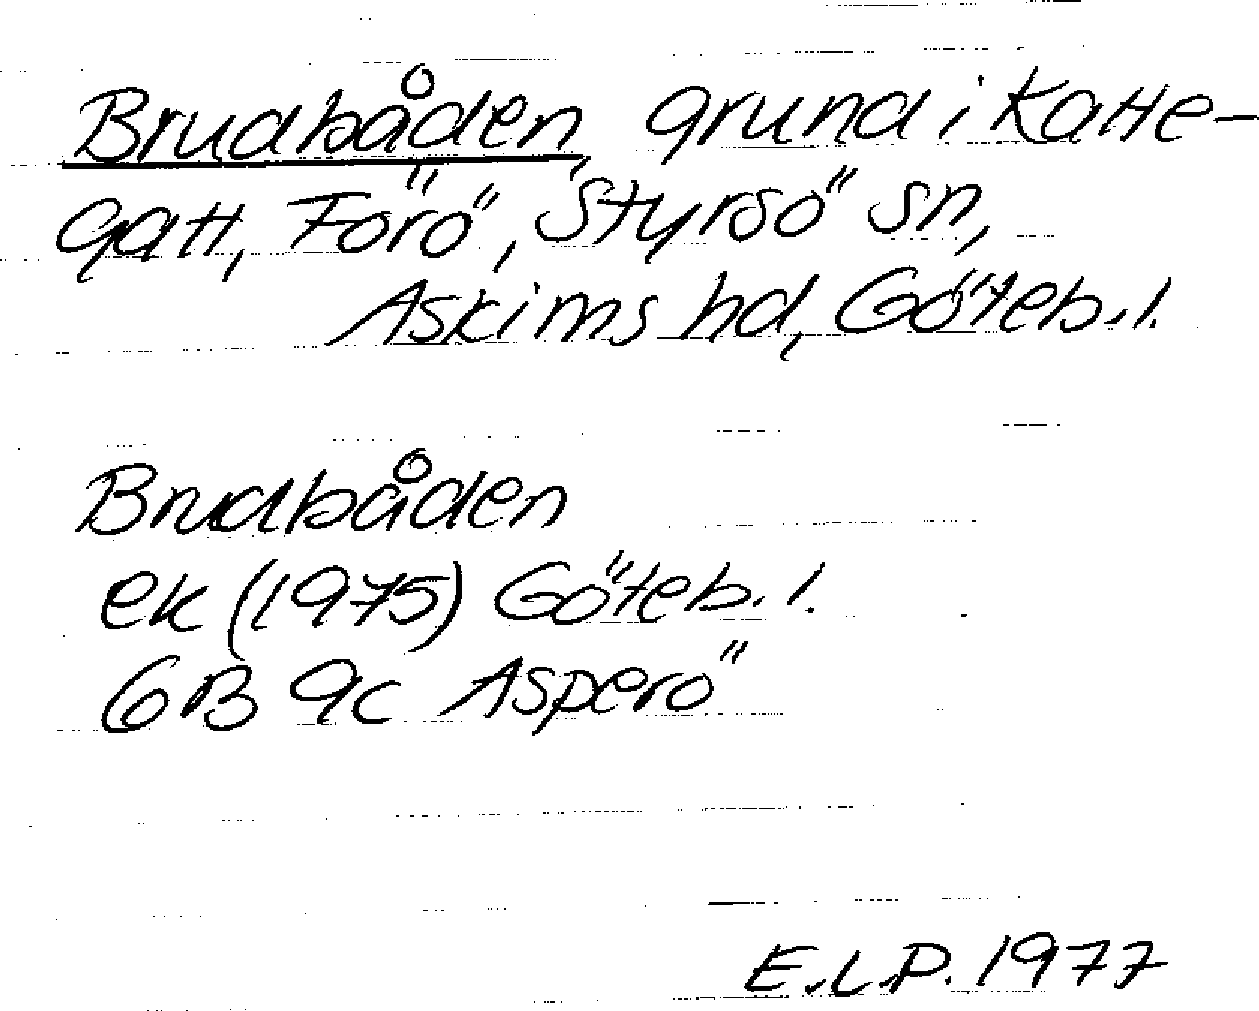 Brudbåden, grund i Katte-
gatt, Förö, Styrsö sn,
Askims hd, Göteb. l.
Brudbåden
ek (1975) Göteb. l.
6B 9c Asperö
E.L.P. 1977